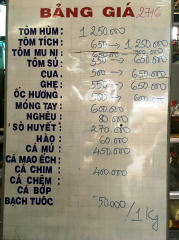 BẢNG GIÁ 27/6
TÔM HÙM: 1 250 000
TÔM TÍCH: 650 → 1 250 000
TÔM MU NI
TÔM SÚ: 550 → 650
CUA: 500 → 650
GHẸ: 550 → 650
ỐC HƯƠNG: 500 → 650
MÓNG TAY: 600.000
NGHÊU: 80 000
SÒ HUYẾT: 270.000
HÀO: 60 000
CÁ MÚ: 450.000
CÁ MAO ẾCH:
CÁ CHIM: 400.000
CÁ CHẼM:
CÁ BỚP
BẠCH TUỘC 50000/1Kg